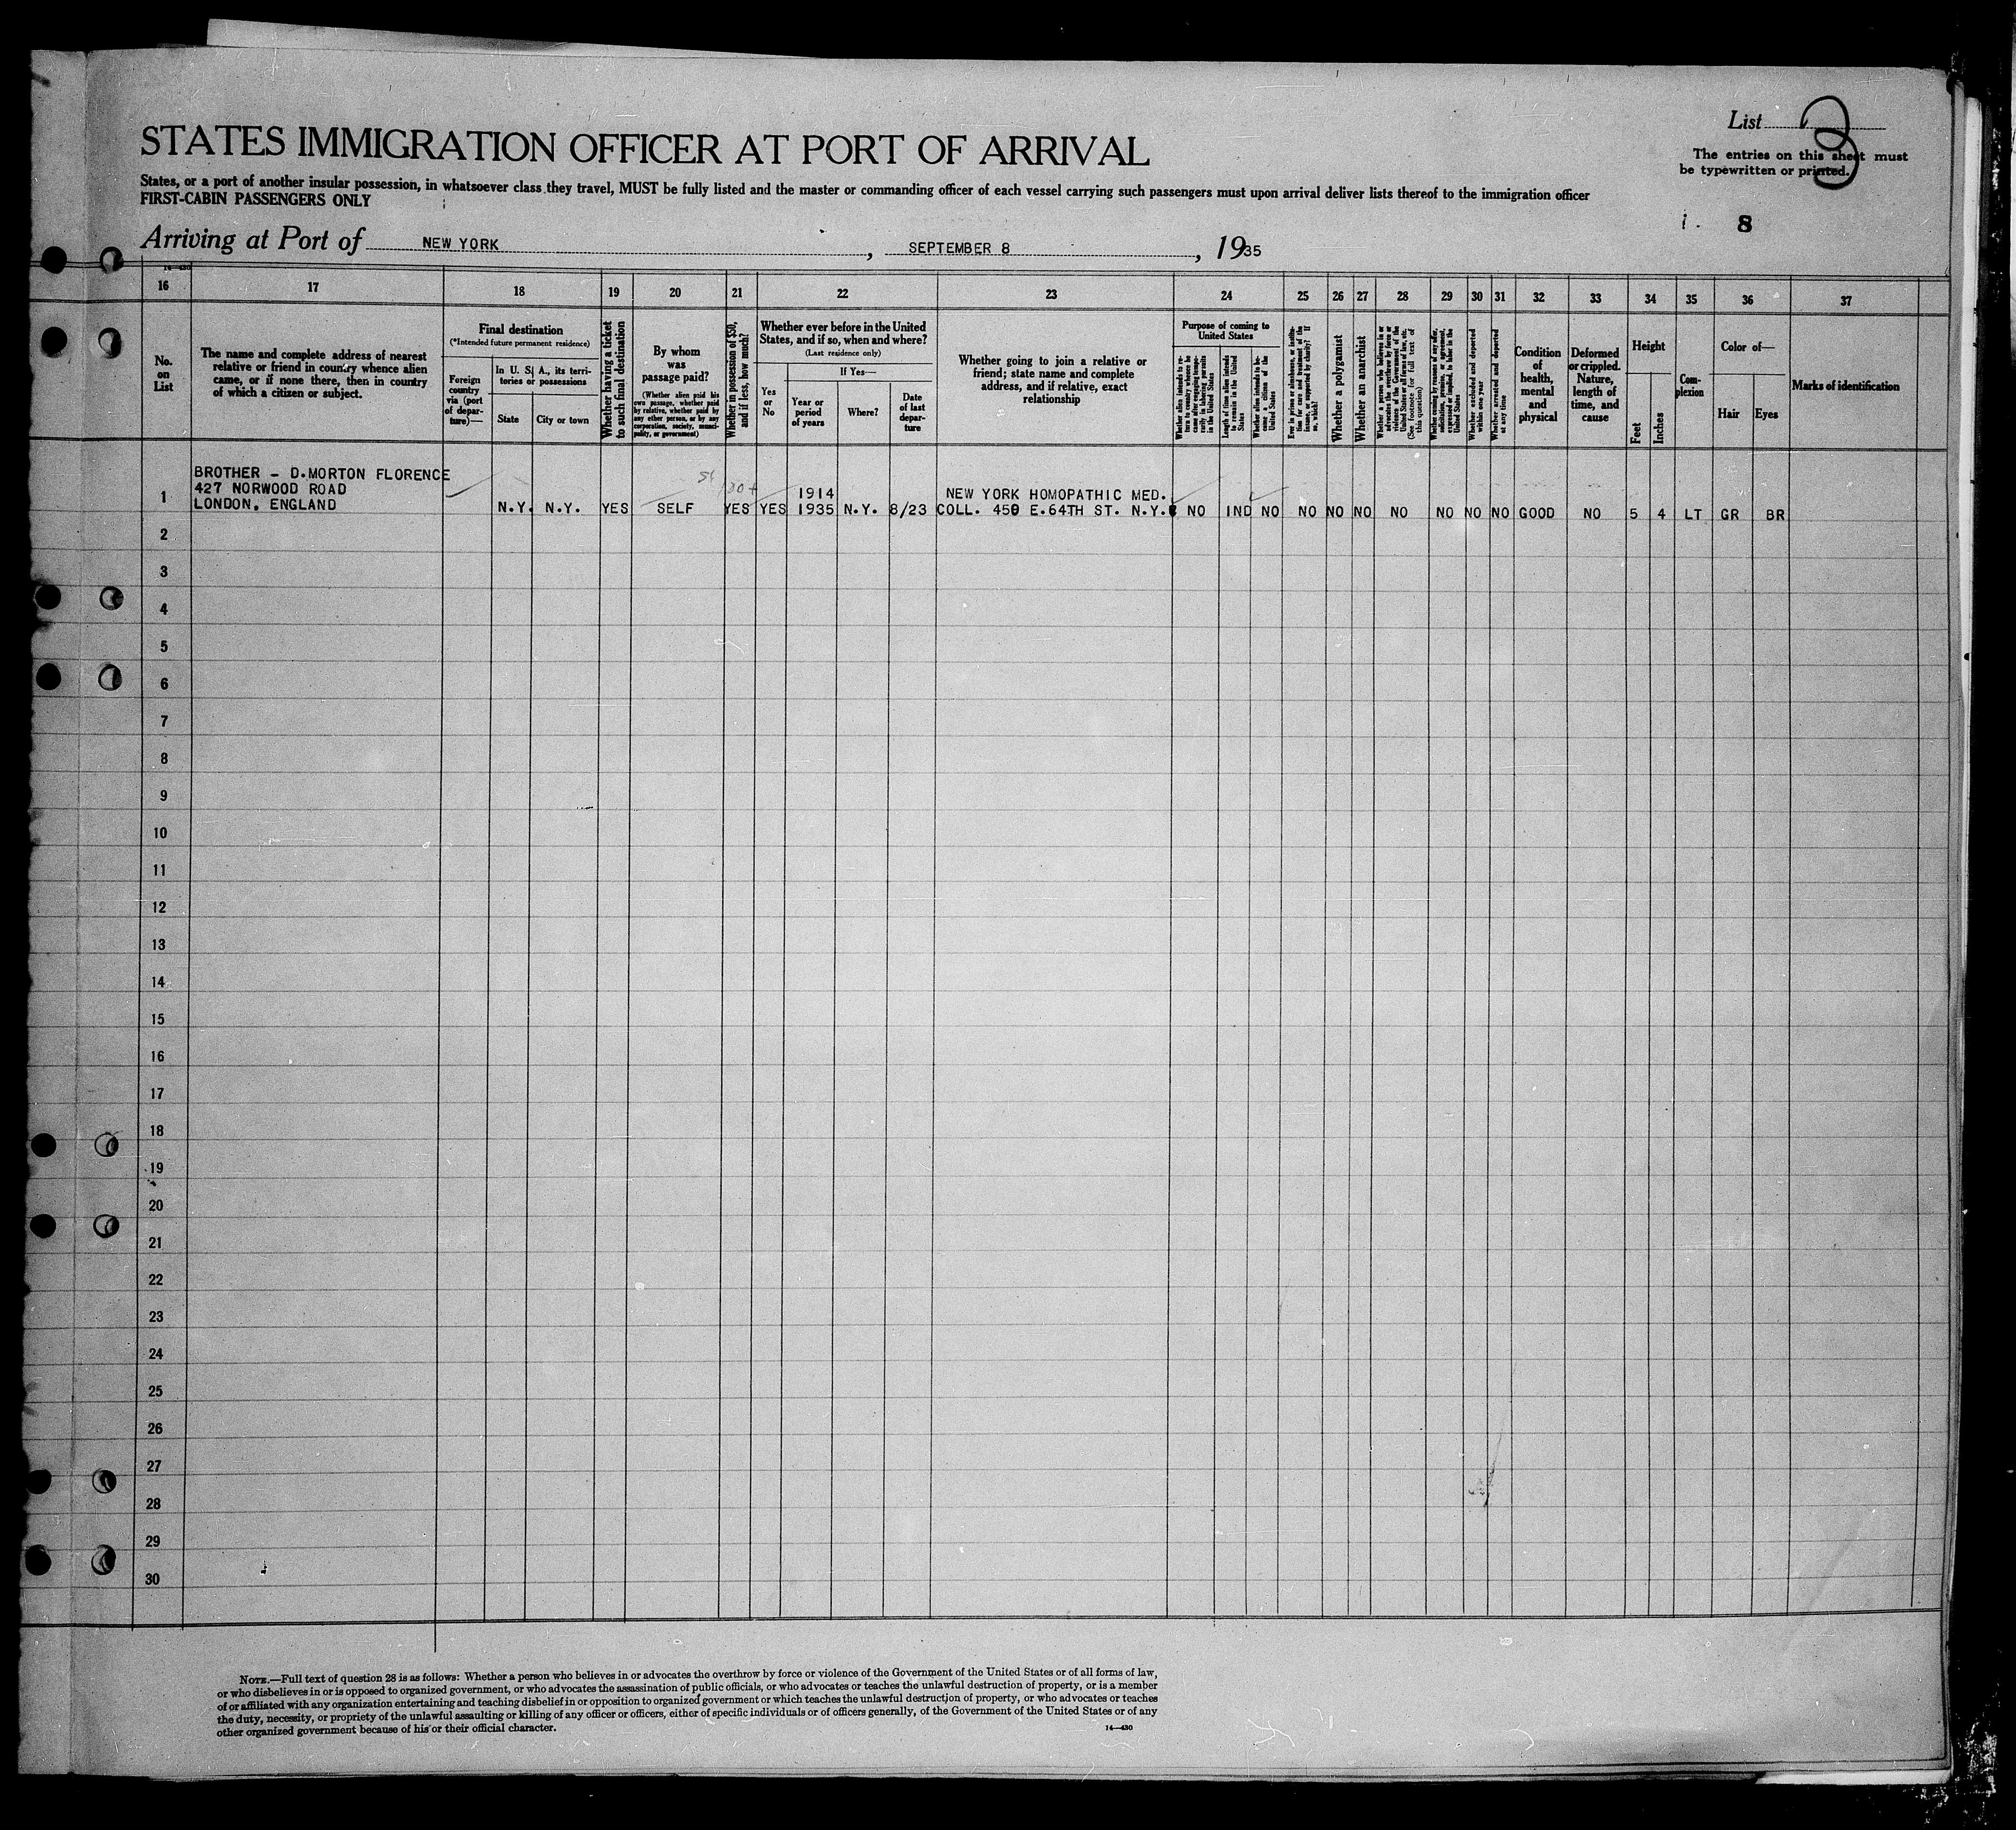 List 3
STATES IMMIGRATION OFFICER AT PORT OF ARRIVAL
The entries on this sheet must
be typewritten or printed.
States, or a port of another insular possession, in whatsoever class they travel, MUST be fully listed and the master or commanding officer of each vessel carrying such passengers must upon arrival deliver lists thereof to the immigration officer
FIRST-CABIN PASSENGERS ONLY
8
Arriving at Port of NEW YORK, SEPTEMBER 8, 1935
14-430
16 17 18 19 20 21 22 23 24 25 26 27 28 29 30 31 32 33 34 35 36 37
No.
on
List
The name and complete address of nearest
relative or friend in country whence alien
came, or if none there, then in country
of which a citizen or subject.
Final destination
(*Intended future permanent residence)
Foreign
country
via (port
of depar-
ture)—
In U. S. A., its terri-
tories or possessions
State
City or town
Whether having a ticket
to such final destination
By whom
was
passage paid?
(Whether alien paid his
own passage, whether paid
by relative, whether paid by
any other person, or by any
corporation, society, munici-
pality, or government)
Whether in possession of $50,
and if less, how much?
Whether ever before in the United
States, and if so, when and where?
(Last residence only)
Yes
or
No
If Yes—
Year or
period
of years
Where?
Date
of last
depar-
ture
Whether going to join a relative or
friend; state name and complete
address, and if relative, exact
relationship
Purpose of coming to
United States
Whether alien intends to re-
turn to country whence he
came after engaging tempo-
rarily in laboring pursuits
in the United States
Length of time alien intends
to remain in the United
States
Whether alien intends to be-
come a citizen of the
United States
Ever in prison or almshouse, or institu-
tion for care and treatment of the
insane, or supported by charity? If
so, which?
Whether a polygamist
Whether an anarchist
Whether a person who believes in or
advocates the overthrow by force or
violence of the Government of the
United States or all forms of law, etc.
(See footnote for full text of
this question)
Whether coming by reason of any offer,
solicitation, promise, or agreement,
expressed or implied, to labor in the
United States
Whether excluded and deported
within one year
Whether arrested and deported
at any time
Condition
of
health,
mental
and
physical
Deformed
or crippled.
Nature,
length of
time, and
cause
Height
Feet
Inches
Com-
plexion
Color of—
Hair
Eyes
Marks of identification
BROTHER - D.MORTON FLORENCE
427 NORWOOD ROAD
LONDON, ENGLAND
1 N.Y. N.Y. YES SELF YES YES
1914
1935 N.Y. 8/23
NEW YORK HOMOPATHIC MED.
COLL. 450 E.64TH ST. N.Y. NO IND NO NO NO NO NO NO NO NO GOOD NO 5 4 LT GR BR
2
3
4
5
6
7
8
9
10
11
12
13
14
15
16
17
18
19
20
21
22
23
24
25
26
27
28
29
30
NOTE.—Full text of question 28 is as follows: Whether a person who believes in or advocates the overthrow by force or violence of the Government of the United States or of all forms of law,
or who disbelieves in or is opposed to organized government, or who advocates the assassination of public officials, or who advocates or teaches the unlawful destruction of property, or is a member
of or affiliated with any organization entertaining and teaching disbelief in or opposition to organized government or which teaches the unlawful destruction of property, or who advocates or teaches
the duty, necessity, or propriety of the unlawful assaulting or killing of any officer or officers, either of specific individuals or of officers generally, of the Government of the United States or of any
other organized government because of his or their official character.
14—430